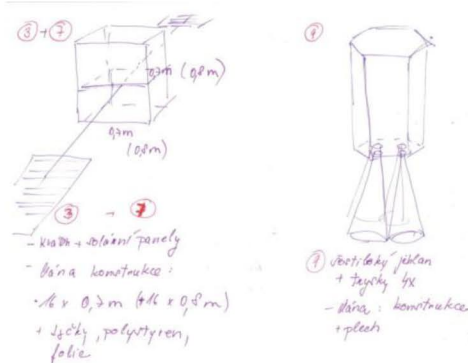 3 + 7
0,7m (0,8m)
0,7m
(0,8m)
3 - 7
- kvádr + solární panely
- dána konstrukce:
• 16 x 0,7m (+16 x 0,8m)
+ polystyren,
folie
9
9 šestiboký
+ trysky 4x
- dána: konstrukce
+ plech